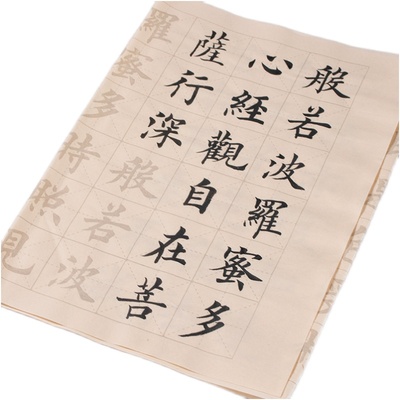 般若波羅蜜多
心經觀自在菩
薩行深般若波
羅蜜多時照見